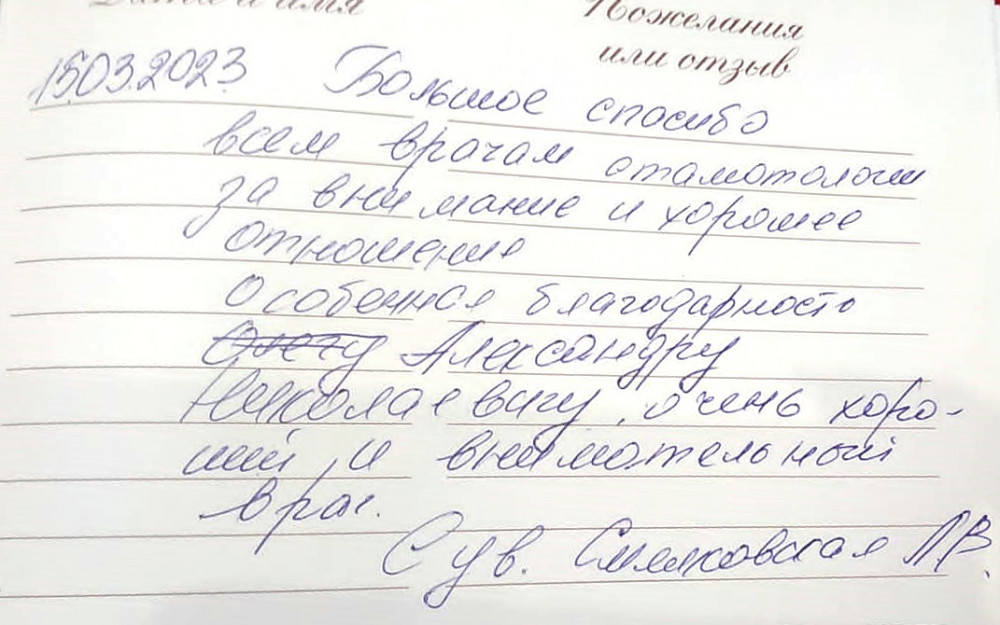 Дата и имя
Пожелания
или отзыв
15.03.2023 Большое спасибо
всем врачам стаматологии
за внимание и хорошее
отношение
Особенная благодарность
Олегу Александру
Николаевичу, очень хоро-
ший и внимательный
врач.
С ув. Смалковская Л В.